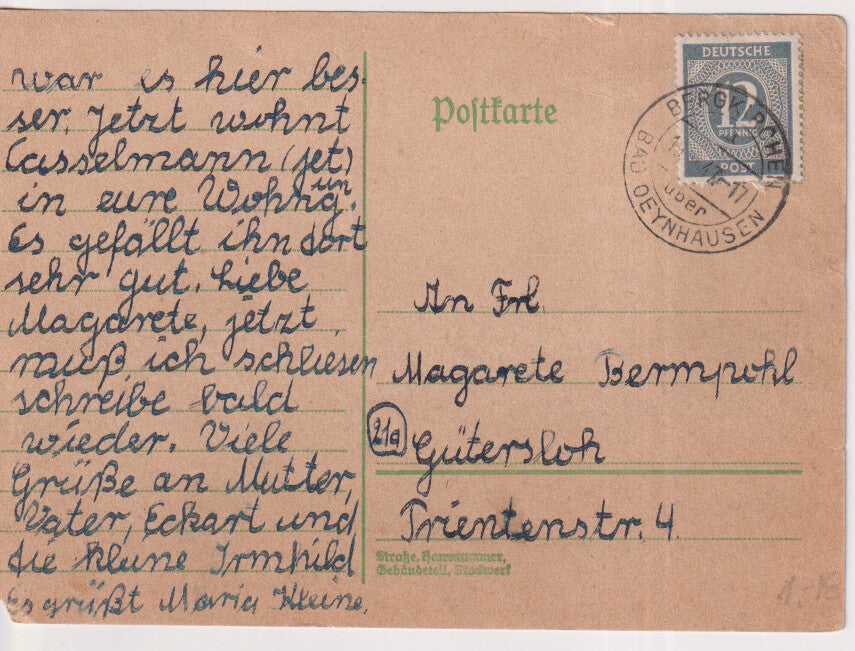 war es hier bes-
ser. Jetzt wohnt
Casselmann (jet)
in eure Wohng un.
Es gefällt ihn dort
sehr gut. Liebe
Magarete, jetzt
muß ich schliesen
schreibe bald
wieder. Viele
Grüße an Mutter,
Vater, Eckart und
die kleine Irmhild
Es grüßt Maria Kleine.
Postkarte
DEUTSCHE
12
PFENNIG
POST
BERGKIRCHEN
über
BAD OEYNHAUSEN
An Frl.
Magarete Bermpohl
21a Gütersloh
Trientenstr. 4.
Straße, Hausnummer,
Gebäudeteil, Stockwerk